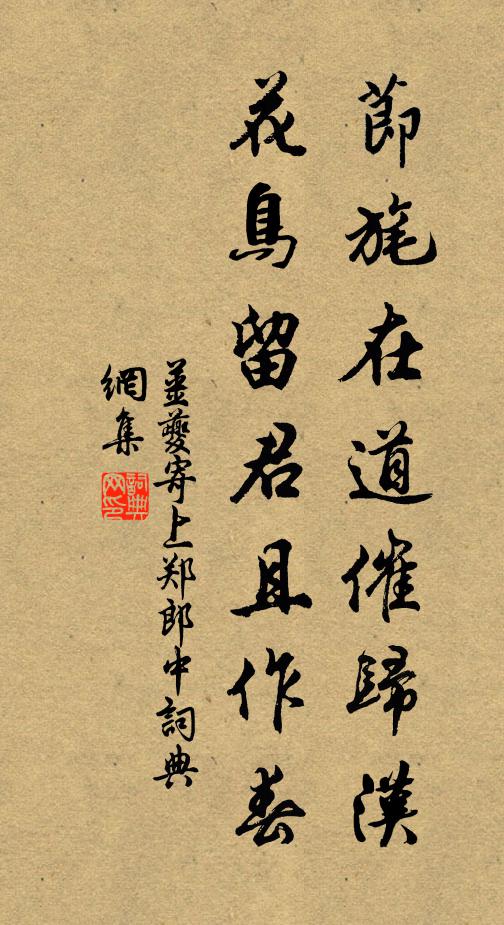 節旄在道催歸漢
花鳥留君且作春
姜夔寄上郑郎中詞典
網集
詞典
网印